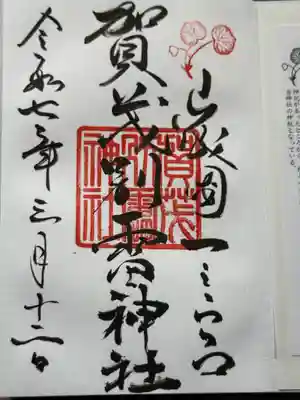 山城國一之宮
賀茂別雷神社
令和七年三月十二日
賀茂別雷神社